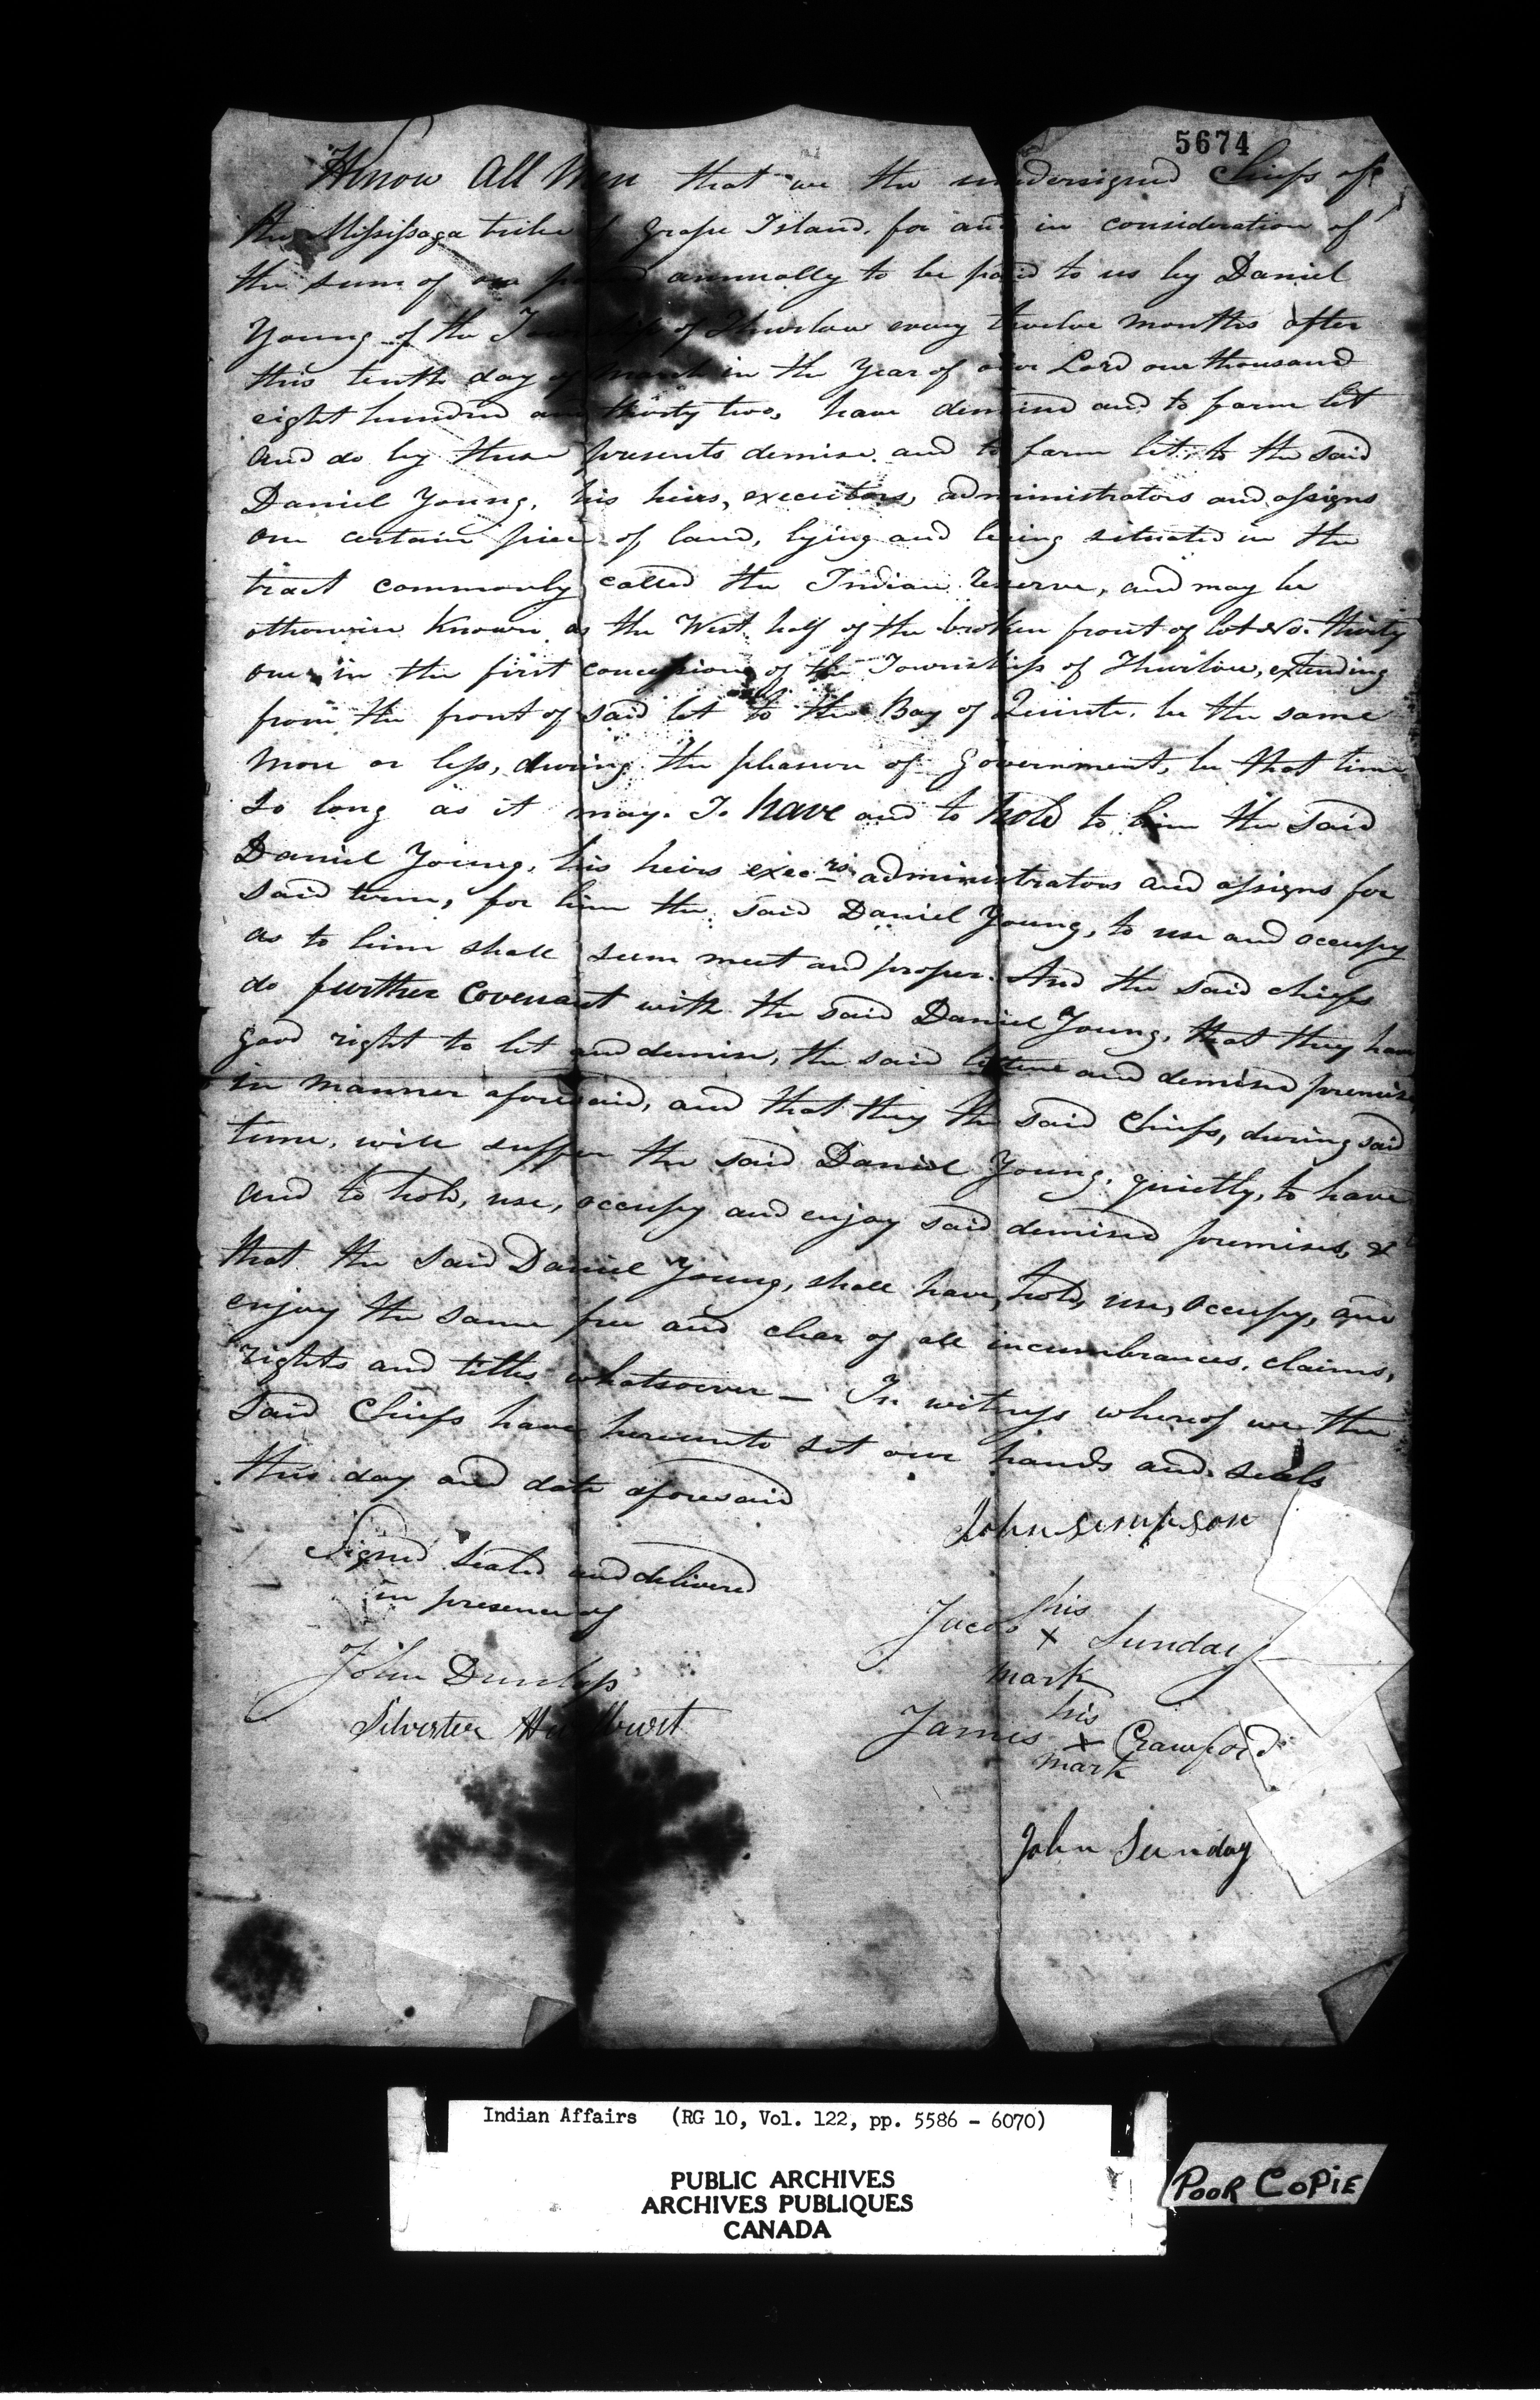 5674
Know All Men that we the undersigned Chiefs of
the Missisaga tribe of Grape Island, for and in consideration of
the sum of one pound annually to be paid to us by Daniel
Young of the Township of Thurlow every twelve months after
this tenth day of March in the Year of our Lord one thousand
eight hundred and thirty two, have demised and to farm let
and do by these presents demise and to farm let to the said
Daniel Young, his heirs, executors, administrators and assigns
one certain piece of land, lying and being situated in the
tract commonly called the Indian reserve, and may be
otherwise known as the West half of the broken front of lot No. thirty
one in the first concession of the Township of Thurlow, extending
from the front of said lot to the Bay of Quinte, be the same
more or less, during the pleasure of Government, be that time
so long as it may. To have and to hold to him the said
Daniel Young, his heirs execrs administrators and assigns for
said term, for him the said Daniel Young, to use and occupy
as to him shall seem meet and proper. And the said chiefs
do further Covenant with the said Daniel Young, that they have
good right to let and demise, the said and demised premises
in manner aforesaid, and that they the said Chiefs, during said
time, will suffer the said Daniel Young, quietly, to have
and to hold, use, occupy and enjoy said demised premises, &
that the said Daniel Young, shall have, hold, use, occupy, and
enjoy the same free and clear of all incumbrances, claims,
rights and titles whatsoever — In witness whereof we the
said Chiefs have hereunto set our hands and seals
this day and date aforesaid
Signed sealed and delivered
in presence of
John Dunlop
Silvester Hurlburt
John Simpson
his
Jacob x Sunday
mark
his
James x Crawford
mark
John Sunday
Indian Affairs (RG 10, Vol. 122, pp. 5586 - 6070)
PUBLIC ARCHIVES
ARCHIVES PUBLIQUES
CANADA
POOR COPIE